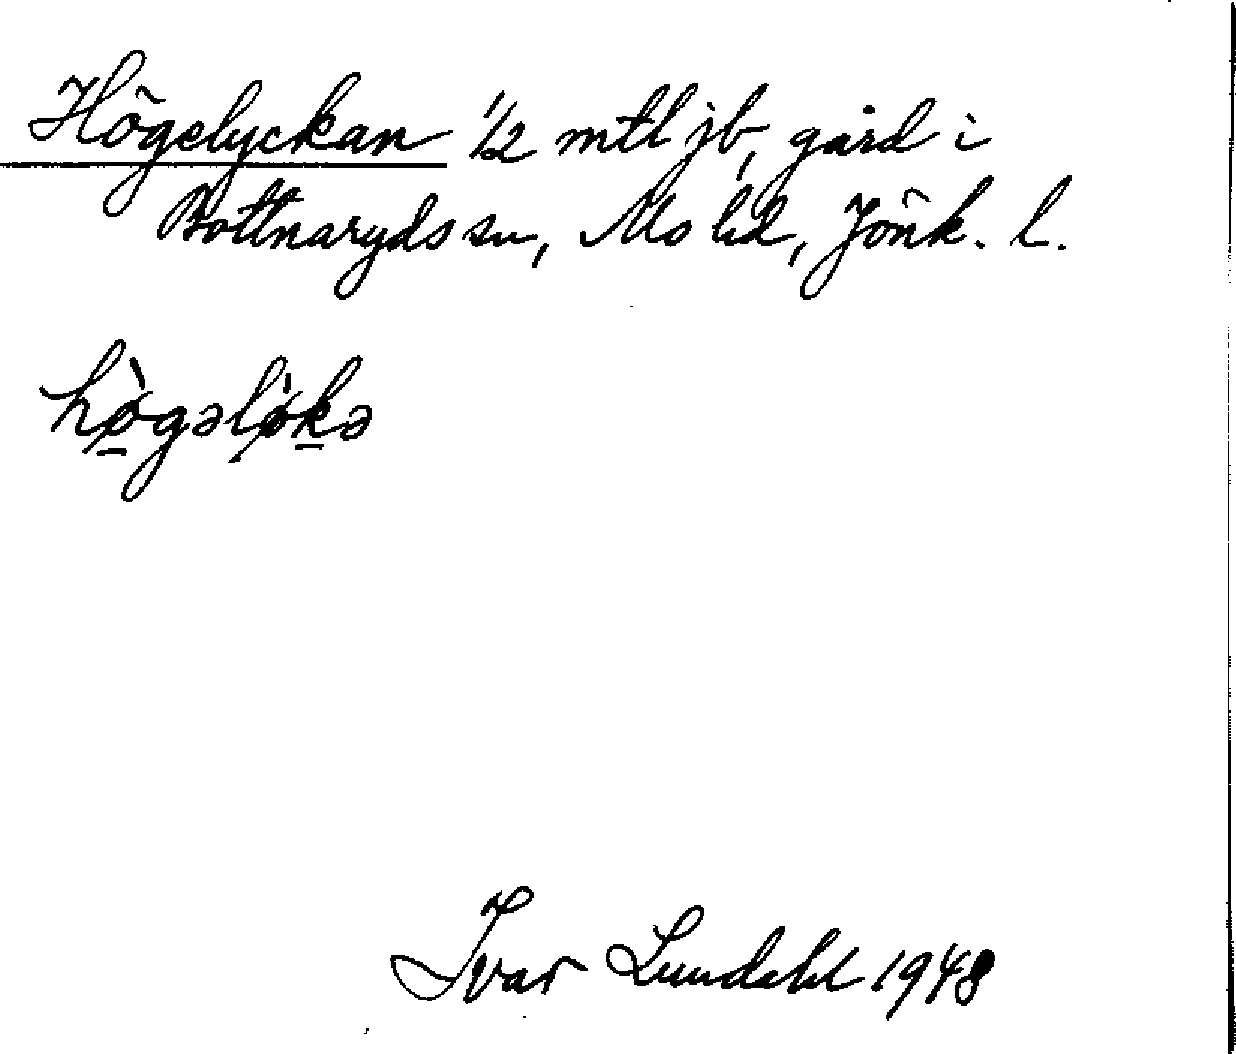 Högelyckan 1/2 mtl jb, gård i
Bottnaryds sn, Mo hd, Jönk. l.
hø̀gəløkə
Ivar Lundahl 1948